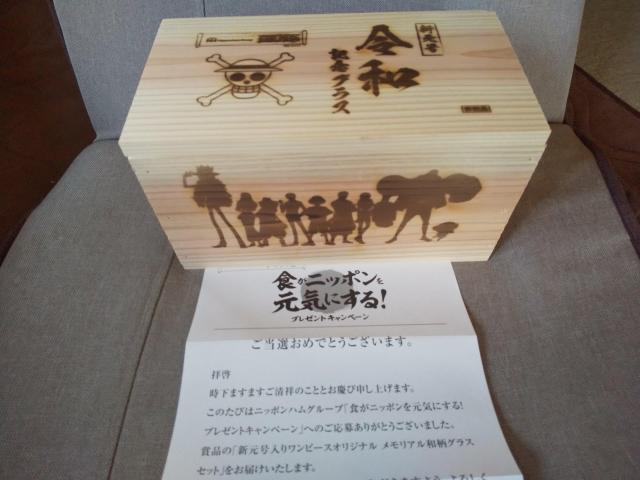 新元号
令和
記念グラス
食がニッポンを
元気にする!
プレゼントキャンペーン
ご当選おめでとうございます。
拝啓
時下ますますご清祥のこととお慶び申し上げます。
このたびはニッポンハムグループ「食がニッポンを元気にする!
プレゼントキャンペーン」へのご応募ありがとうございました。
賞品の「新元号入りワンピースオリジナル メモリアル和柄グラス
セット」をお届けいたします。